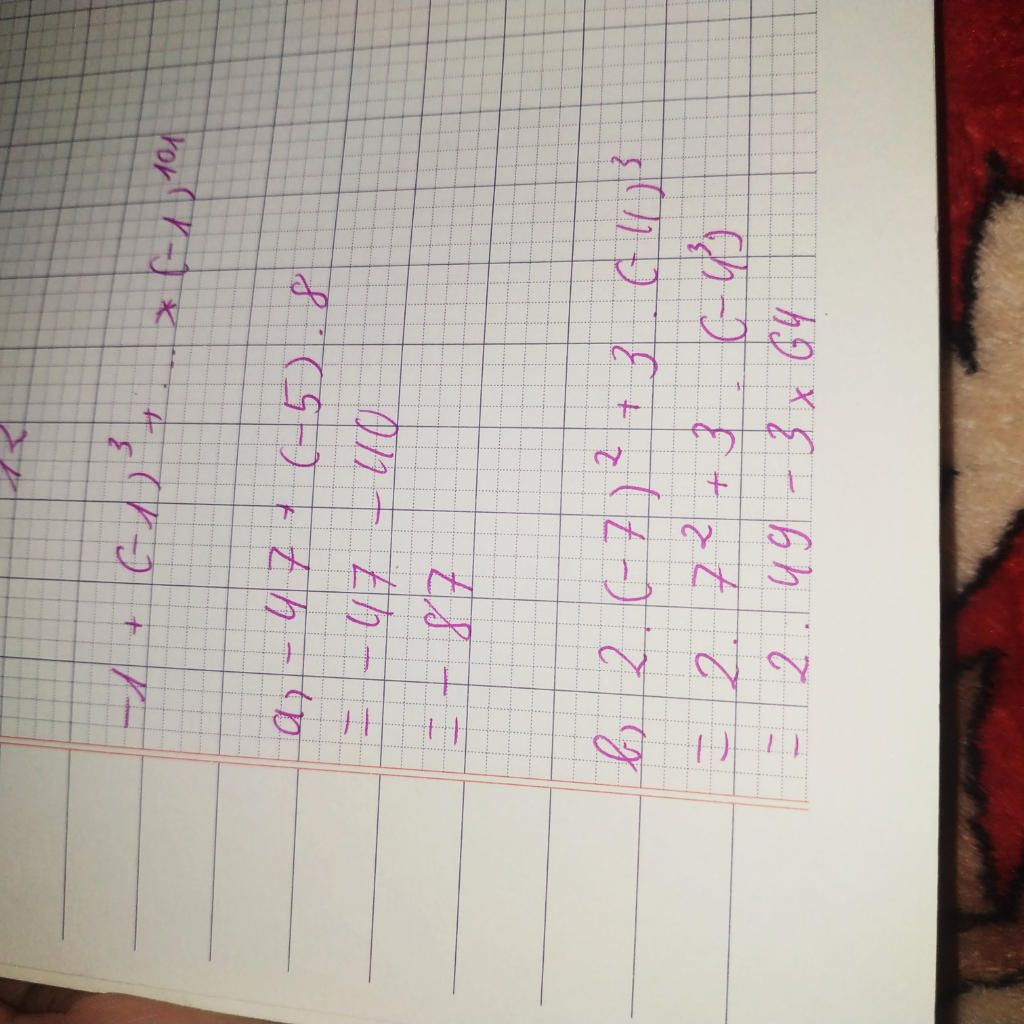 12
-1 + (-1)³ + ... * (-1)¹⁰¹
a) -47 + (-5) . 8
= -47 - 40
= - 87
b) 2 . (-7)² + 3 . (-4)³
= 2 . 7² + 3 . (-4³)
= 2 . 49 - 3 x 64